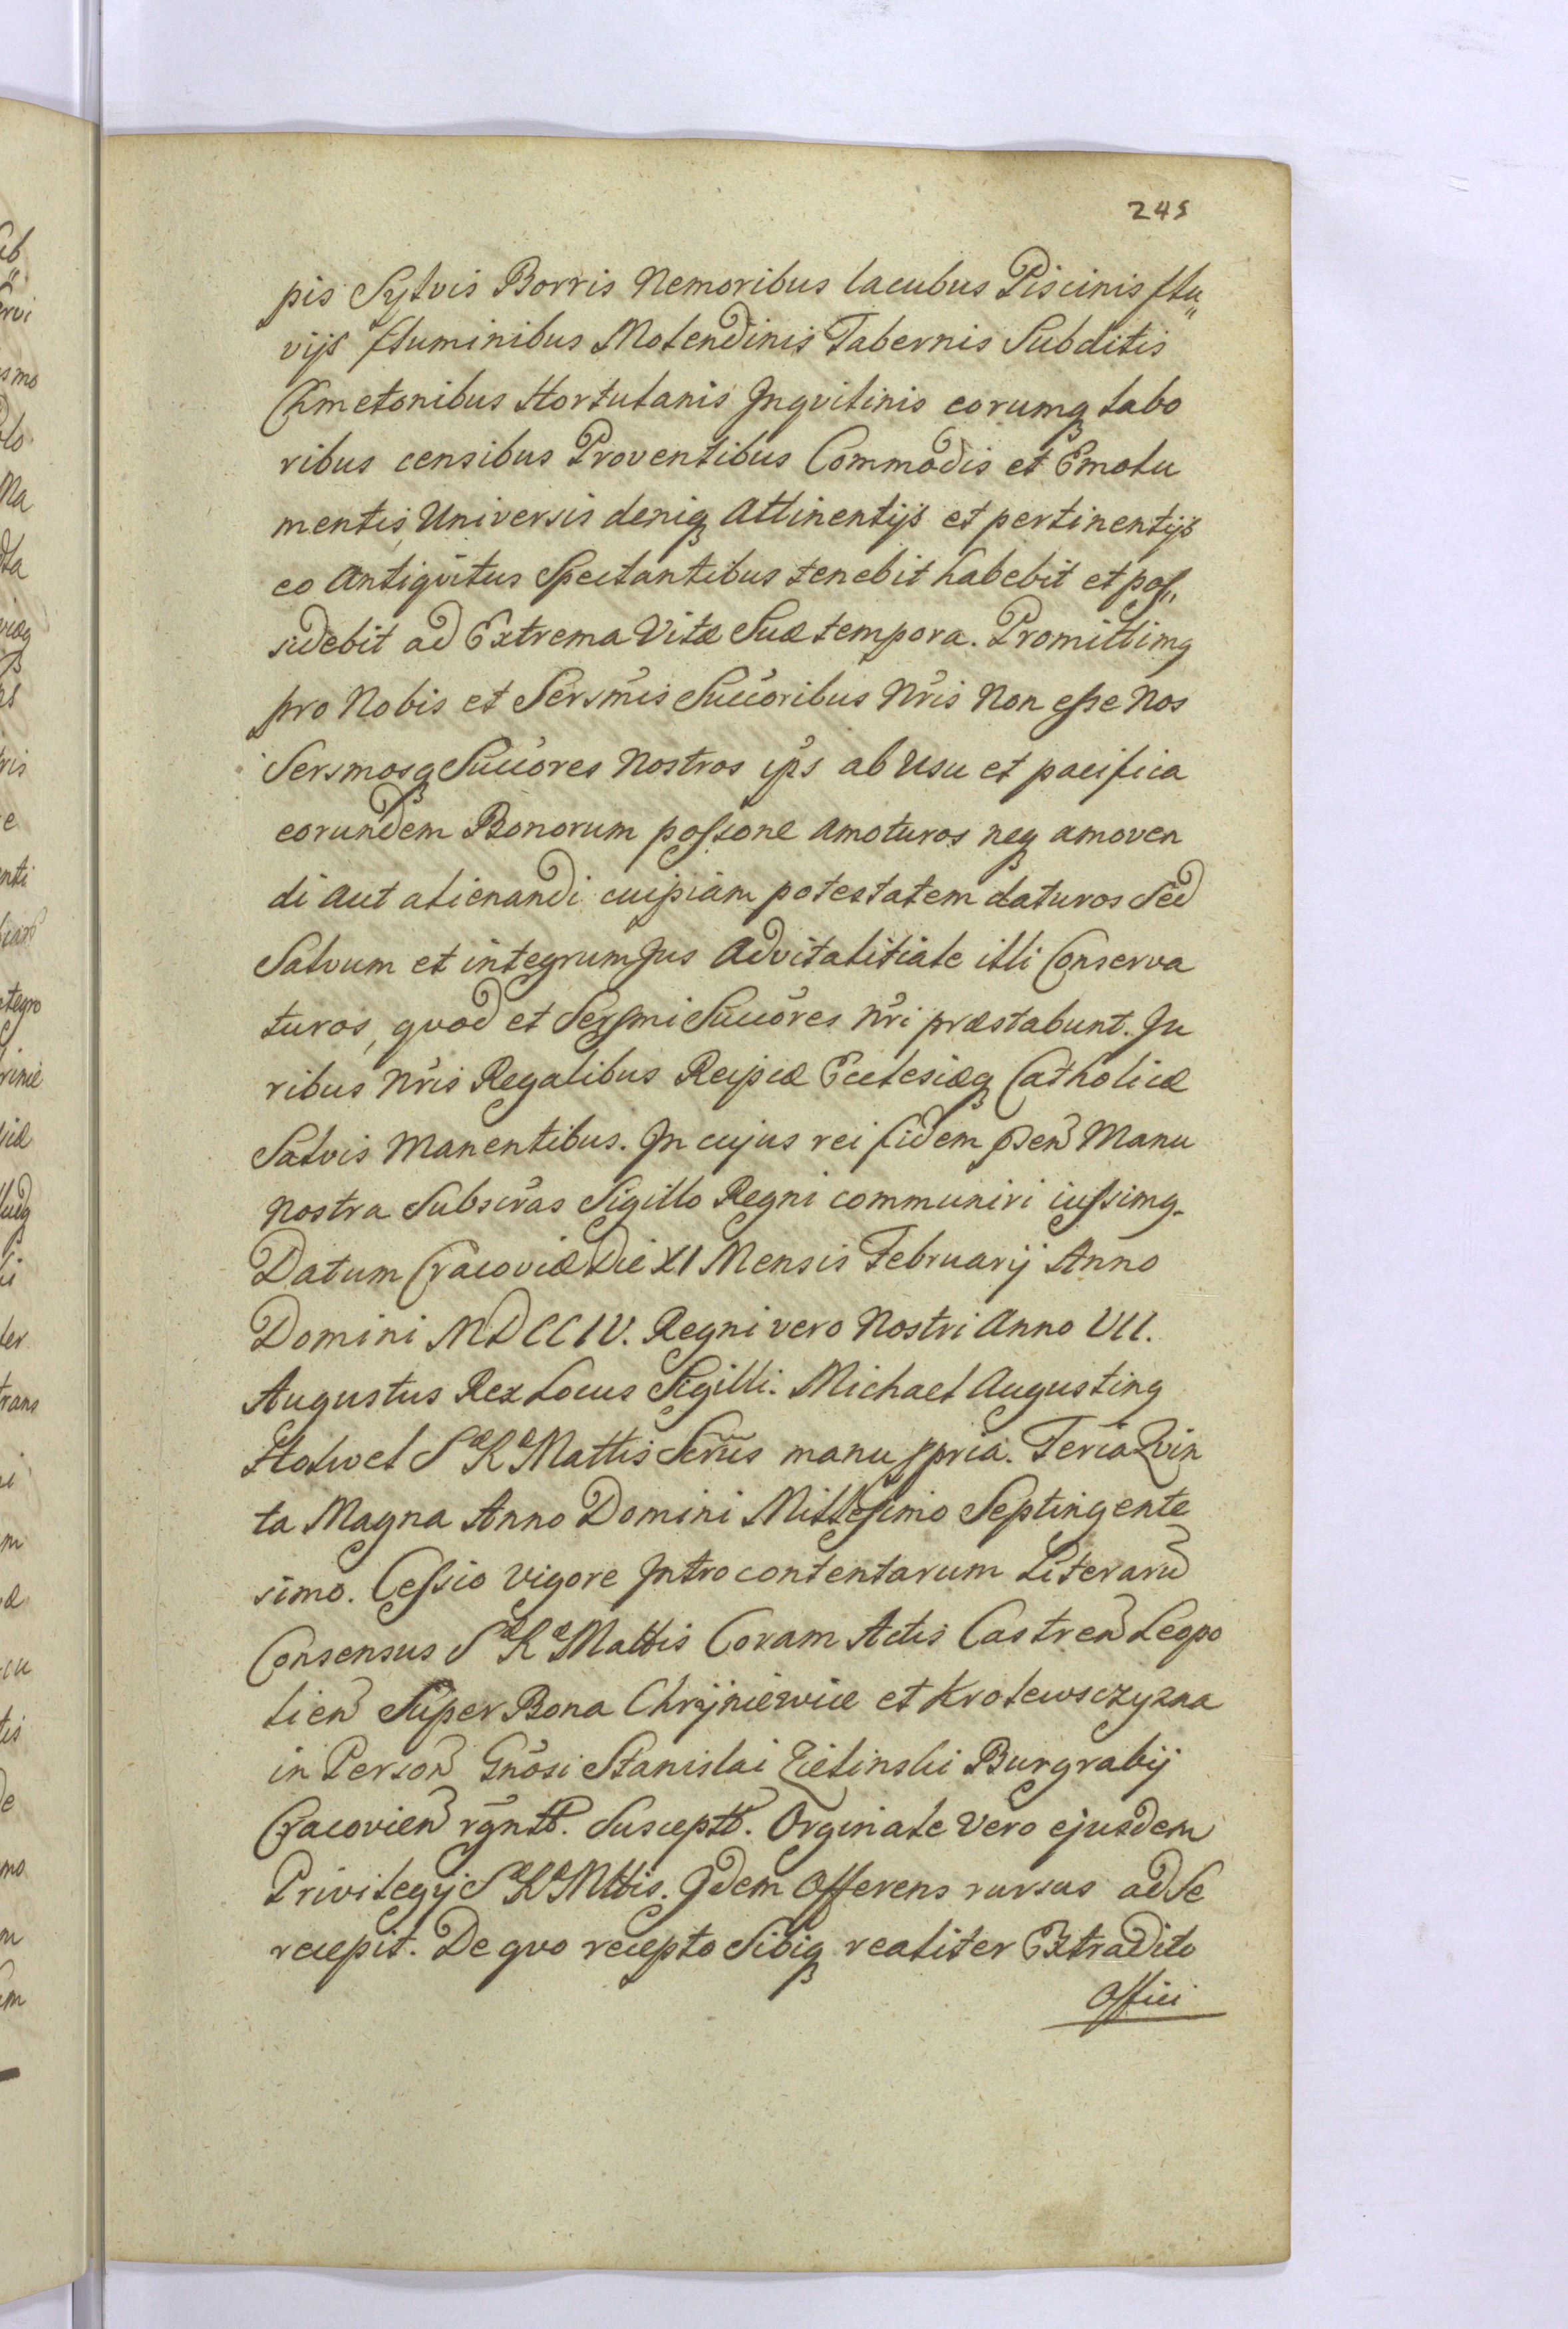 245
pis Sylvis Borris Nemoribus lacubus Piscinis flu„
vijs fluminibus Molendinis Tabernis Subditis
Cmetonibus Hortulanis Inqvilinis eorumq labo
ribus censibus Proventibus Commodis et Emolu
mentis, Universis deniq Attinentijs et pertinentijs
eo Antiqvitus Spectantibus tenebit habebit et pos„
sidebit ad Extrema Vitæ Suæ tempora. Promittimq
pro Nobis et Sersmis Succoribus Nris Non esse Nos
Sersmosq Succores Nostros ips ab Usu et pacifica
eorundem Bonorum possone amoturos neq amoven
di aut alienandi cuipiam potestatem daturos Sed
Salvum et integrum Jus Advitalitiale illi Conserva
turos, qvod et Sersmi Succores Nri præstabunt. Ju
ribus Nris Regalibus Reipcæ Ecclesiæq Catholicæ
Salvis Manentibus. In cujus rei fidem pñ Manu
Nostra Subscras Sigillo Regni communiri iussimq.
Datum Cracoviæ Die XI Mensis Februarij Anno
Domini MDCCIV. Regni vero Nostri Anno VII.
Augustus Rex Locus Sigilli. Michael Augustinq
Holwel S R Mattis Scrius manu ppria. Feria Qvin
ta Magna Anno Domini Millesimo Septingente
simo. Cessio vigore Introcontentarum Literaru
Consensus S R Mattis Coram Actis Castren Leopo
lien Super Bona Chryniewice et Krolewsczyzna
in Person Gnosi Stanislai Zielinski Burgrabij
Cracovien rgntt. Susceptt. Orginale Vero ejusdem
Privilegij S R Mttis. Idem Offerens rursus ad Se
recepit. De qvo recepto Sibiq realiter Extradito
Offici